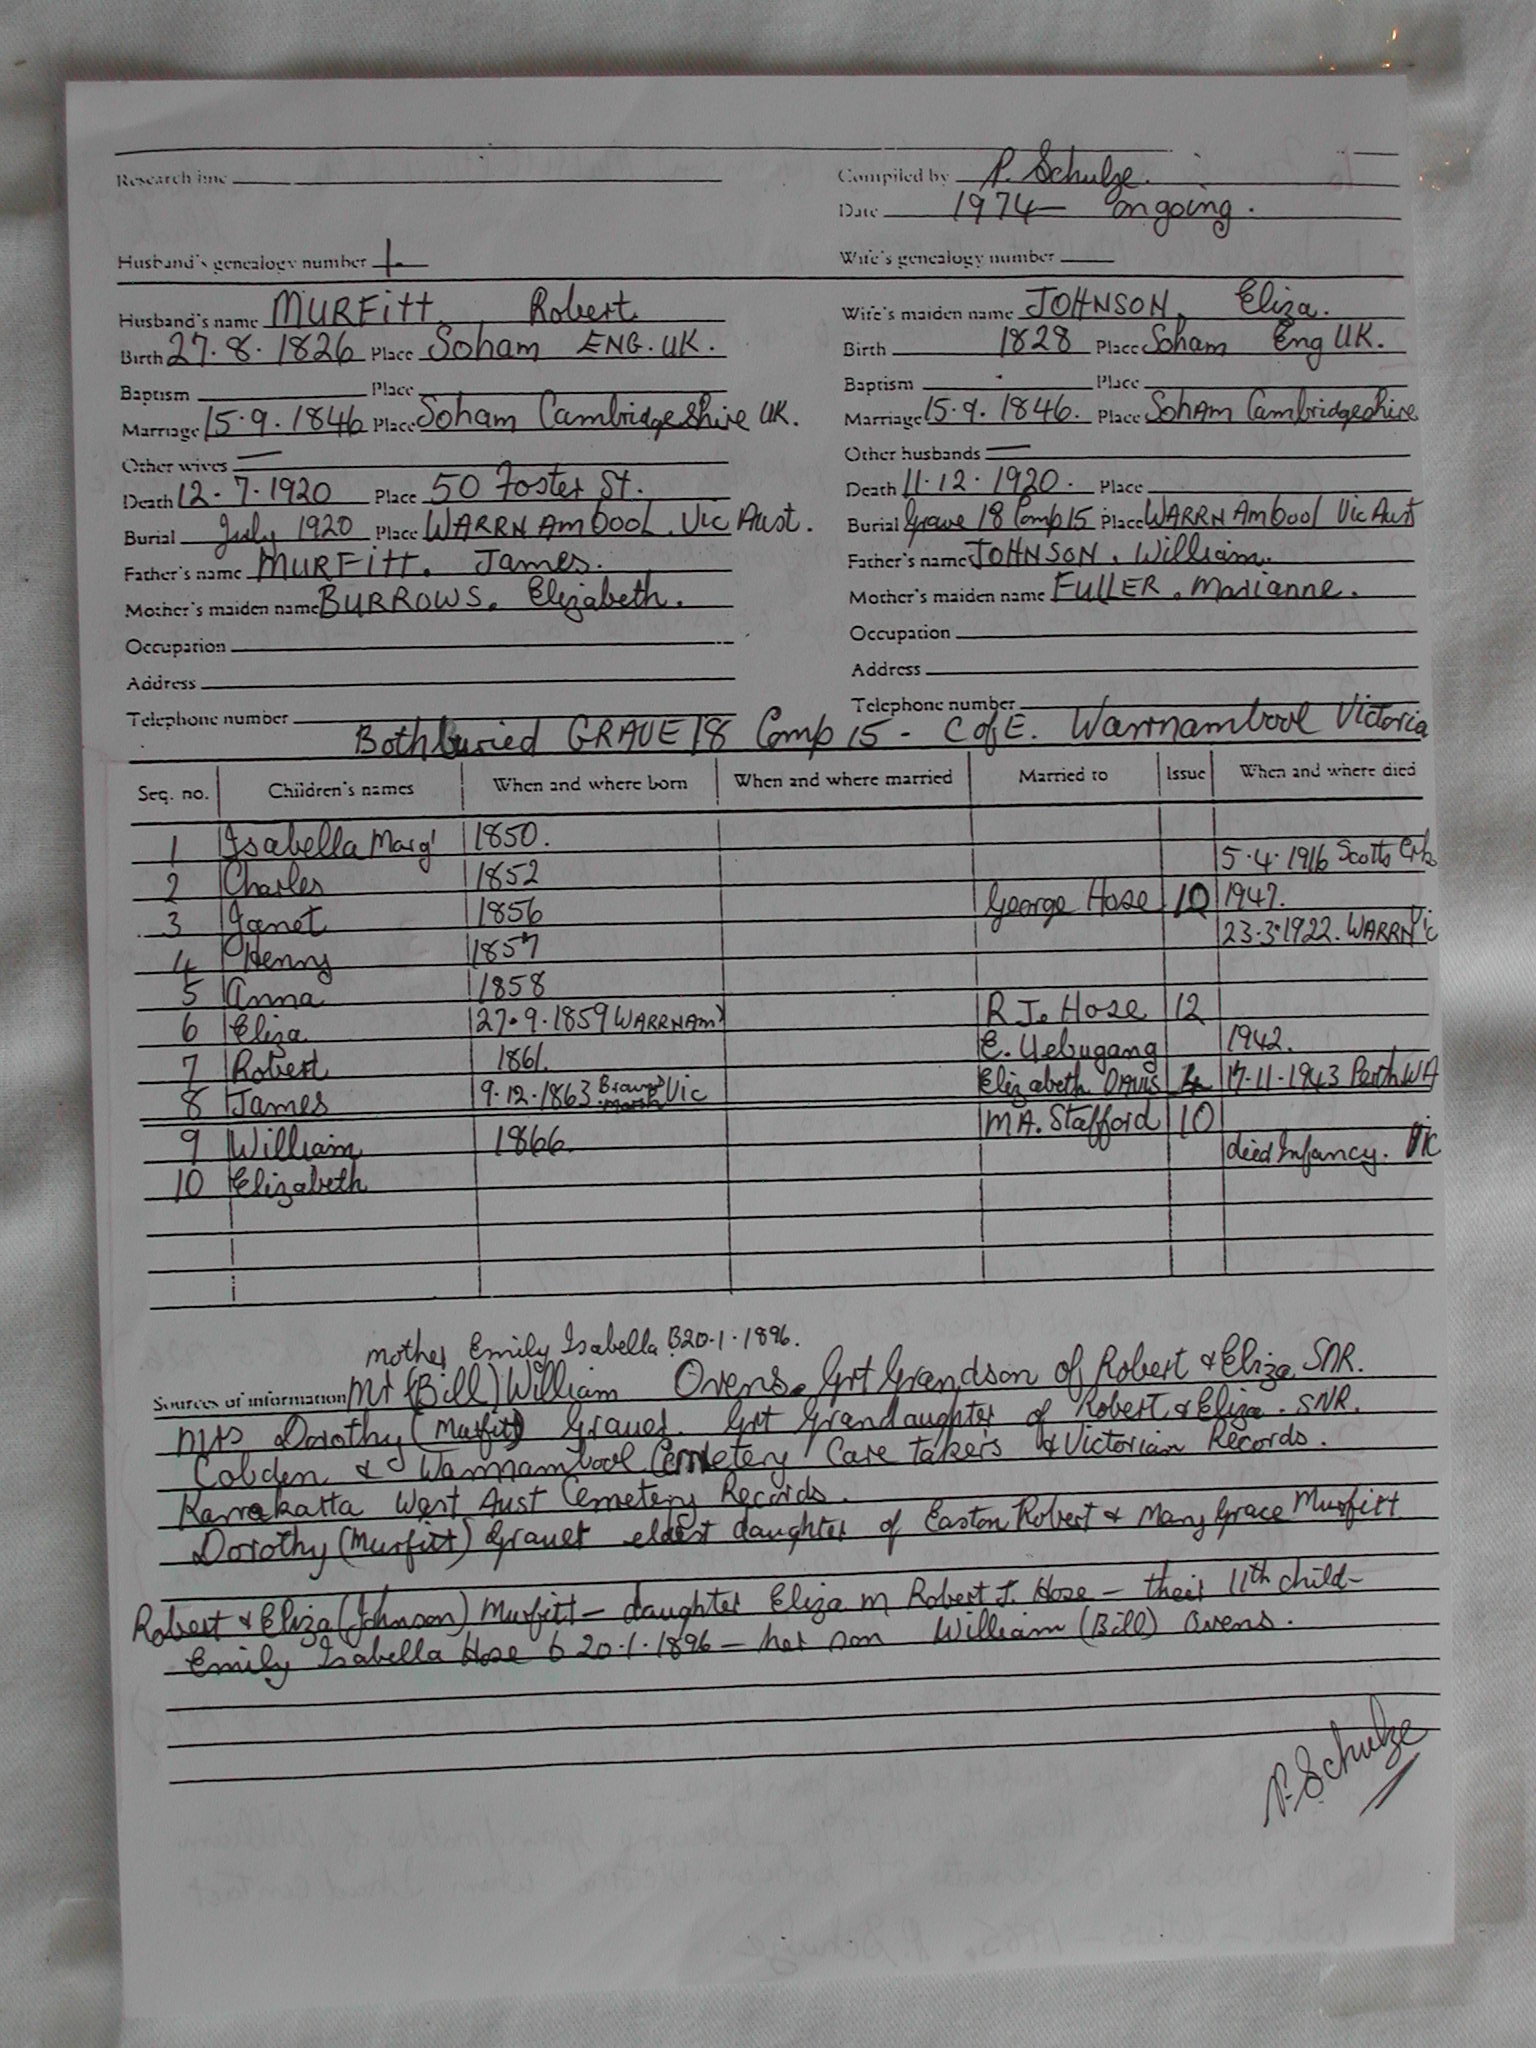 Research line
Compiled by P. Schulze.
Date 1974— ongoing.
Husband's genealogy number 1.
Wife's genealogy number
Husband's name MURFitt. Robert
Wife's maiden name JOHNSON, Eliza.
Birth 27.8.1826 Place Soham ENG. UK.
Birth 1828 Place Soham Eng UK.
Baptism Place
Baptism Place
Marriage 15.9.1846 Place Soham Cambridgeshire UK.
Marriage 15.9.1846. Place Soham Cambridgeshire
Other wives —
Other husbands —
Death 12.7.1920 Place 50 Foster St.
Death 11.12.1920. Place
Burial July 1920 Place WARRNAmbool. Vic Aust.
Burial Grave 18 Comp 15 Place WARRNAmbool Vic Aust
Father's name MURFitt. James.
Father's name JOHNSON. William.
Mother's maiden name BURROWS. Elizabeth.
Mother's maiden name FULLER. Marianne.
Occupation
Occupation
Address
Address
Telephone number
Telephone number
Both buried GRAVE 18 Comp 15 - C of E. Warrnambool Victoria
Seq. no. Children's names When and where born When and where married Married to Issue When and where died
1 Isabella Marg' 1850.
2 Charles 1852 5.4.1916 Scotts Crk
3 Janet 1856 George Hose 10 1947.
4 Henry 1857 23.3.1922. WARRN Vic
5 Anna 1858
6 Eliza 27.9.1859 WARRNAm R J. Hose 12
7 Robert 1861. E. Uebugang 1942.
8 James 9.12.1863 Vic Elizabeth DAVIS 4 17.11.1943 Perth WA
9 William 1866. M A. Stafford 10
10 Elizabeth died Infancy. Vic
mother Emily Isabella B20.1.1896.
Sources of information Mr (Bill) William Ovens. Grt Grandson of Robert & Eliza SNR.
Mrs Dorothy (Murfitt) Graves. Grt Grandaughter of Robert & Eliza. SNR.
Cobden & Warrnambool Cemetery Care takers & Victorian Records.
Karrakatta West Aust Cemetery Records.
Dorothy (Murfitt) Graves eldest daughter of Easton Robert & Mary Grace Murfitt
Robert & Eliza (Johnson) Murfitt — daughter Eliza m Robert J. Hose — their 11th child—
Emily Isabella Hose b 20.1.1896 — her son William (Bill) Ovens.
P. Schulze